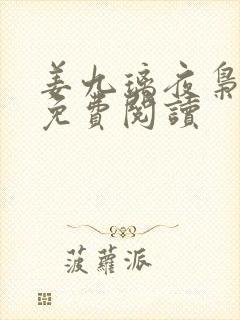 姜九璃夜梟
免費閱讀
菠蘿派